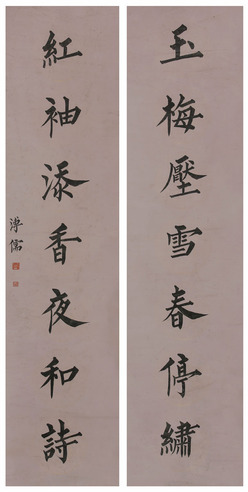 玉梅壓雪春停繡
紅袖添香夜和詩
溥儒